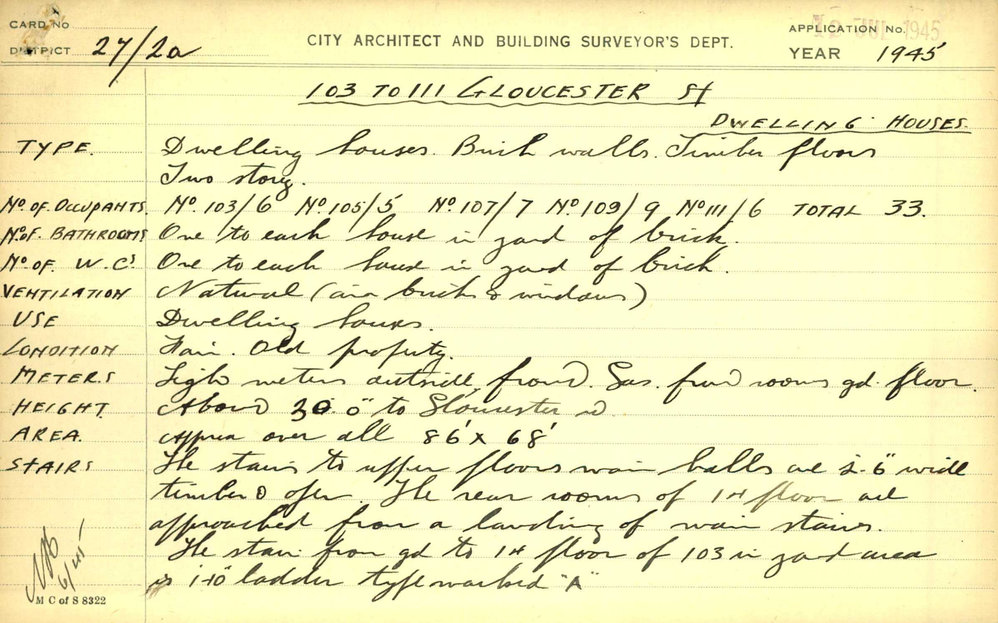 CARD No
DISTRICT 27/2a
CITY ARCHITECT AND BUILDING SURVEYOR'S DEPT.
APPLICATION No. 1945
YEAR 1945
103 TO 111 GLOUCESTER St
DWELLING HOUSES.
TYPE. Dwelling houses. Brick walls. Timber floors
Two storey.
No. OF. OCCUPANTS. No. 103/6 No. 105/5 No. 107/7 No. 109/9 No 111/6 TOTAL 33.
No. OF BATHROOMS One to each house in yard of brick.
No. OF W.C.s One to each house in yard of brick.
VENTILATION Natural (air bricks & windows)
USE Dwelling houses.
CONDITION Fair. Old property.
METERS Light meters outside, front. Gas. front rooms gd. floor.
HEIGHT. About 30'.0" to Gloucester
AREA. Area over all 86' x 68'
STAIRS The stairs to upper floors main halls are 2'.6" wide
timber & open. The rear rooms of 1st floor are
approached from a landing of main stairs.
The stair from gd to 1st floor of 103 in yard area
is 1'-10" ladder type marked "A"
6/45
M C of S 8322